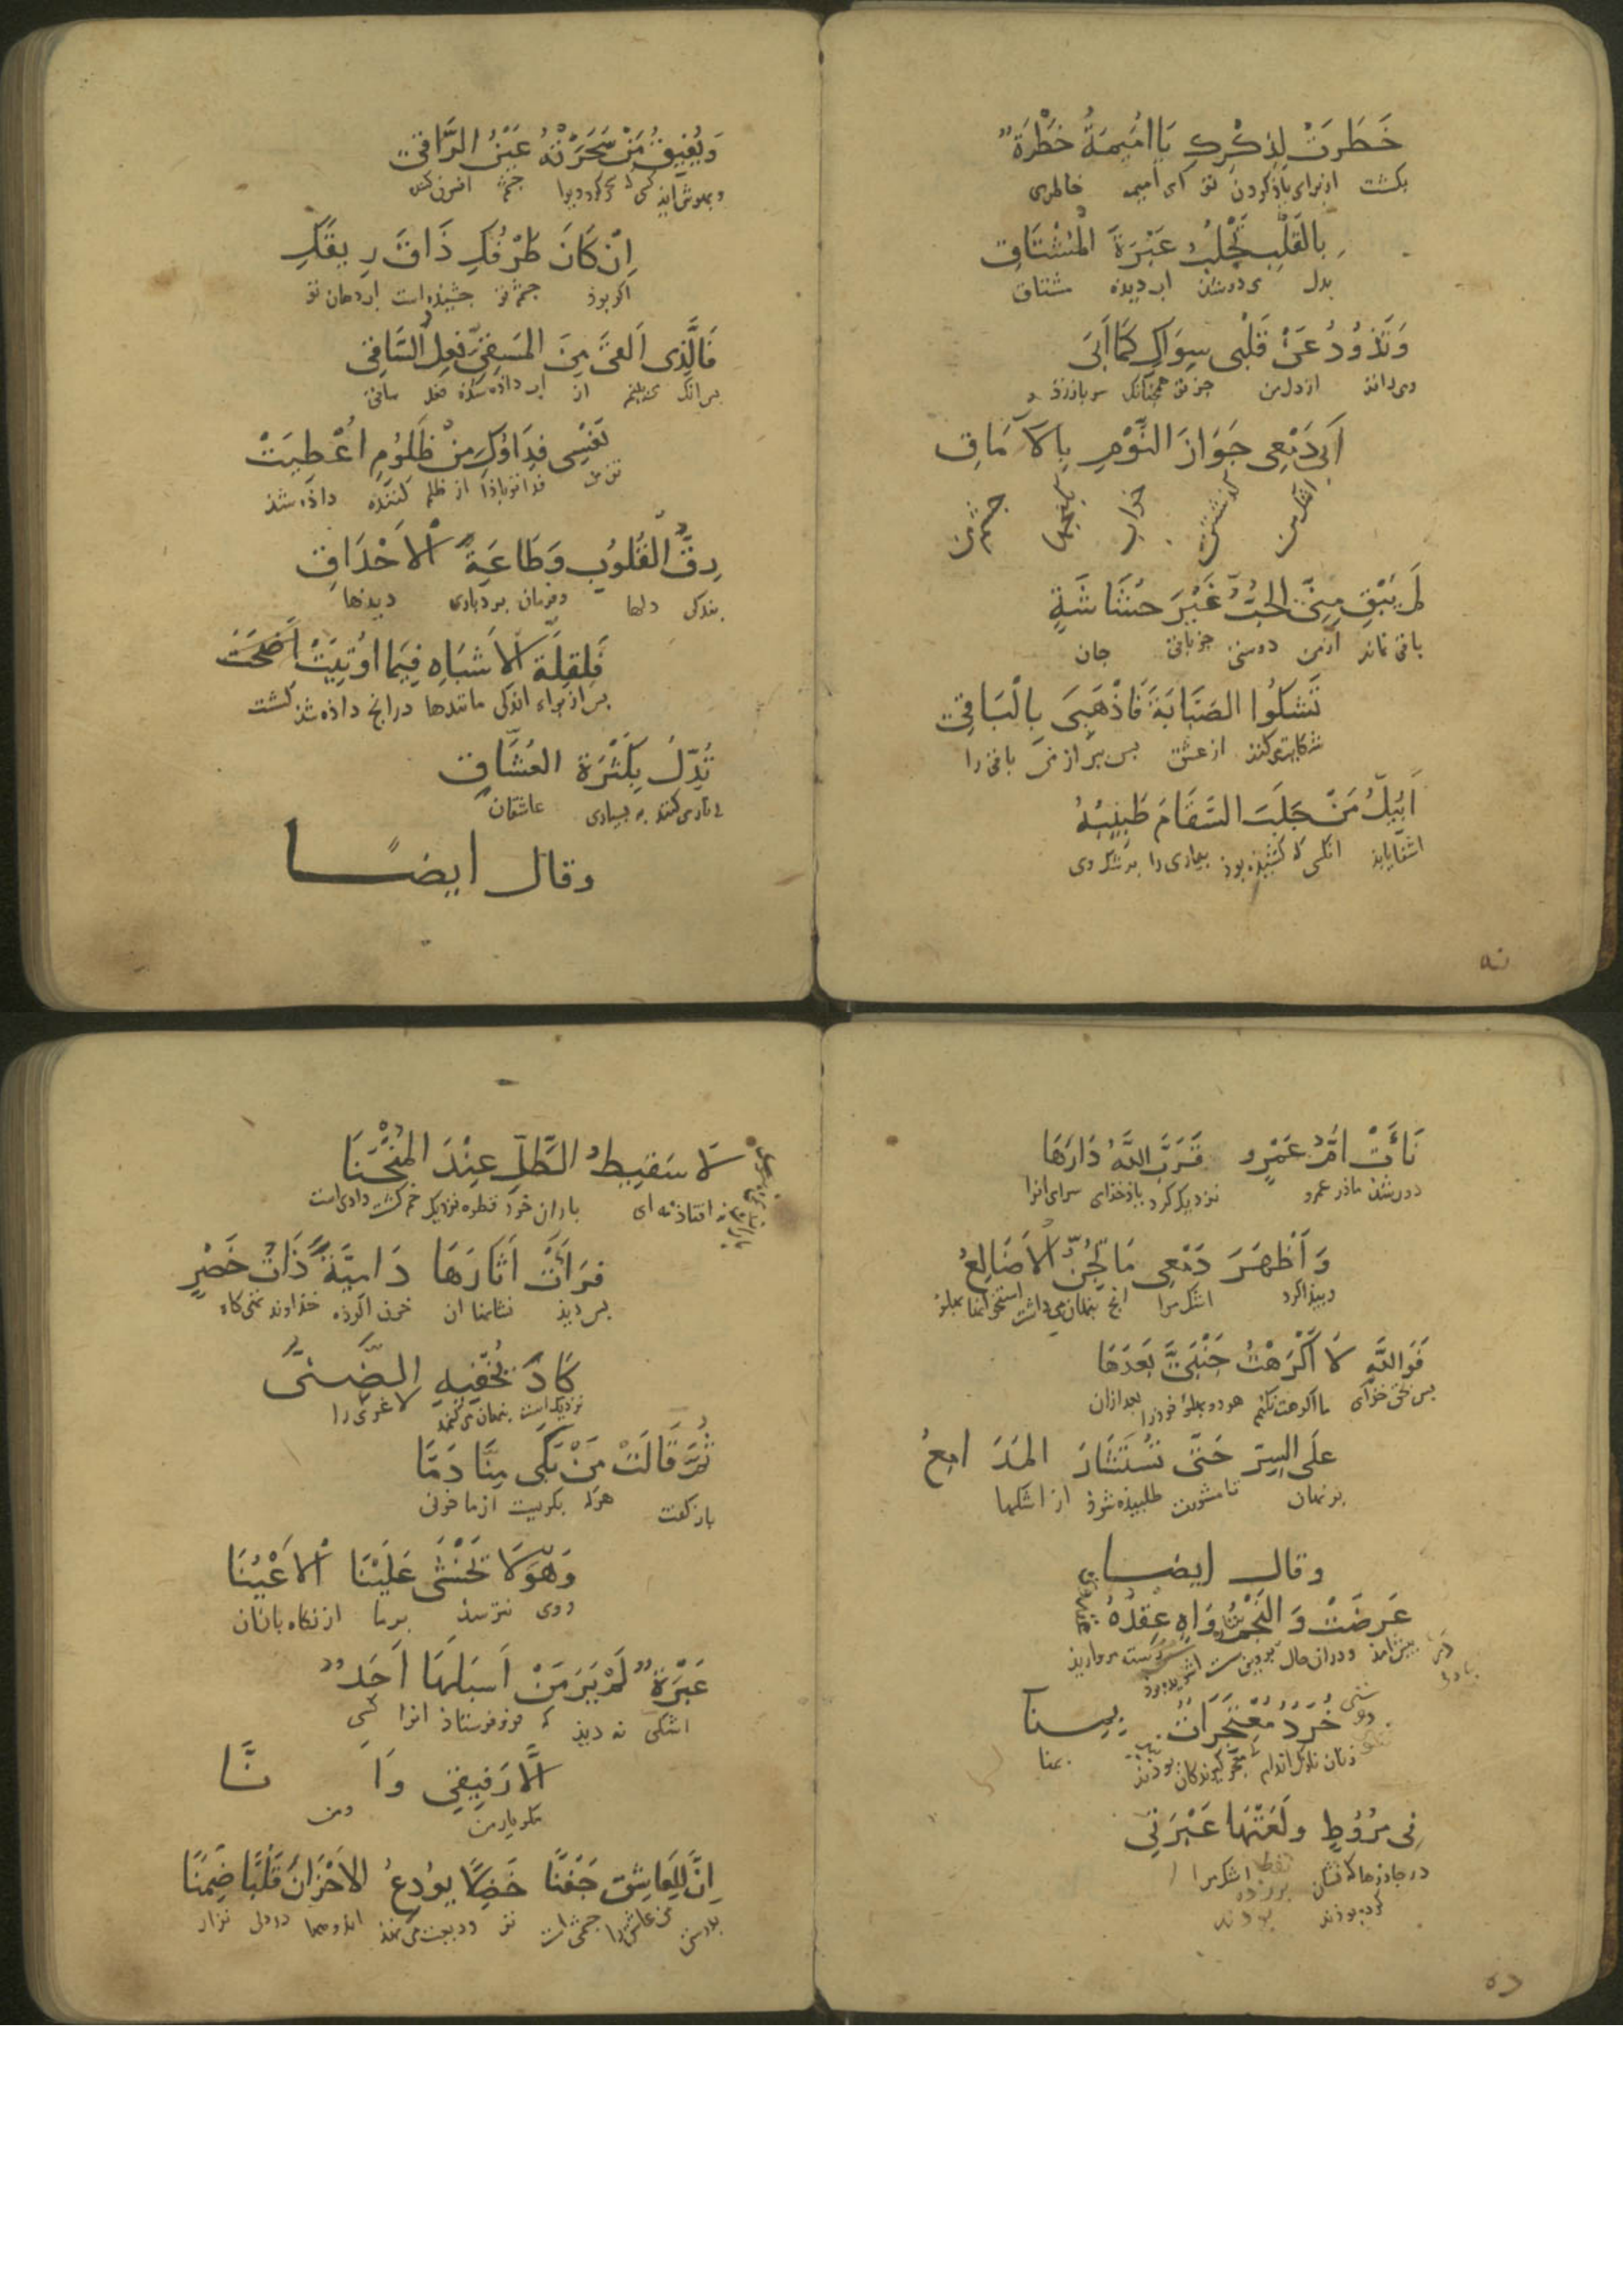 خَطَرَتْ لِذِكْرِكِ يَا اُمَيْمَةُ خَطْرَةٌ
بكشت ازبراى ياذكردن تو اى اميمه خاطرى
بِالقَلْبِ تَجْلُبُ عَبْرَةَ الْمُشْتَاقِ
بدل اب ديده مشتاق
وَتَذُودُ عَنْ قَلْبِى سِوَاكِ كَمَا اَبَى
ازدل من جز تو همچنانك سرباززذ
اَبَى دَمْعِى جَوَازَ النَّوْمِ بِالآمَاقِ
اشك من كذشتن خواب چشم من
لَمْ يَبْقِ مِنِّى الحُبُّ غَيْرَ حُشَاشَةٍ
باقى نماند ازمن دوستى جز باقى جان
تَشكُوا الصَبَابَةَ فَاذْهَبِى بِالْبَاقِى
شكايت ميكنند ازعشق بس ببر از من باقى را
اَيُبِلُّ مَنْ جَلَبَ السَقَامَ طَبِيْبُهُ
اشفا يابذ انكس كه كشيذه بوذ بيمارى را بزشك وى
نه
وَيُفِيقُ مَنْ سَحَرَتْهُ عَيْنُ الرَّاقِى
وبهوش ايذ كسى كه چشم افسون كننده
اِنْ كَانَ طَرْفُكِ ذَاقَ رِيقَكِ
اكر بوذ چشم تو چشيذه است اب دهان تو
فَالَّذِى اَلقَى مِنَ المَسْقِىِّ فِعِلُ السَّاقِى
بس انك مى بينم از اب داذه شده فعل ساقى
نَفْسِى فِدَاؤُكِ مِنْ ظَلُومٍ اُعْطِيَتْ
تن من فداتوباذا از ظلم كننده داذه شذ
رِقَّ الْقُلُوبِ وَطَاعَةَ الاَحْدَاقِ
بندكى دلها وفرمان بردبارى ديدها
فَلِقِلَّةِ الاَشبَاهِ فِيمَا اُوتِيَتْ اَضْحَتْ
بس ازبراء اندكى مانندها درانچ داذه شذ كشت
تُدِلُّ بِكَثْرَةِ العُشَّاقِ
به بسيارى عاشقان
وقال ايضــا
نَأَتْ اُمُّ عَمْرٍو قَرَّبَ اللهُ دَارَهَا
دورشذ ماذر عمرو نزديك كرد باذ خذاى سراى انرا
وَاَظْهَرَ دَمْعِى مَا تَجُنُّ الاَضَالِعُ
وبيذا كرد اشك مرا انچ بنهان مى داشت استخوانهاء بهلو
فَوَاللهِ لاَ اَكْرَهْتُ جَنْبَىَّ بَعْدَهَا
بس بحق خذاى ما اكراهت نكنم هردو بهلوء خوذ را بعد ازان
عَلَى السِرِّ حَتَّى تُسْتَشَارَ المَدَامِعُ
برنهان تا مشورت طلبيذه شوذ از اشكها
وقال ايضــا
عَرَضَتْ وَالنَجْمُ وَاهٍ عِقْدُهُ
بيش امذ ودران حال بروين سست رشته مرواريد
خُرَّدٌ مُعْتَجِرَاتٌ بِمِنَا
زنان نازك اندام معجر كيرندكان بوذند بمنا
فِى مُرُوطٍ وَلَعَتْهَا عَبْرَتِى
در جاذرها اشك مرا
كرده بوذند
ده
لاَ سَقِيطُ الطَّلِّ عِنْدَ المُنْحَنَا
نه افتاذنه اى باران خرد قطره نزديك خم كشت وادى است
فرَأَتْ اَثَارَهَا دَامِيَةً ذَاتُ خَصْرٍ
بس ديذ نشانها ان خون الوذه خذاوند تهى كاه
كَادَ يُخْفِيهِ الضَّنَى
نزديك است بنهان مى كند لاغرى را
ثُمَّ قَالَتْ مَنْ بَكَى مِنَّا دَمًا
باز كفت هرك بكريست ازما خونى
وَهْوَ لاَ تَخْشَى عَلَيْنَا الاَعْيُنَا
ووى نترسذ برما از نكاه بانان
عَبْرَةً لَمْ يَرَ مَنْ اَسبَلَهَا اَحَدٌ
اشكى نه ديذ كه فروفرستاذ انرا كسى
اِلاَّ رَفِيقِى وَاَنَا
مكر يار من ومن
اِنَّ لِلعَاشِقِ جَفنًا خَضِلاً يُودِعُ الاَحْزَانَ قَلْبًا ضَمِنَا
بدرستى كى عاشق را چشمى است تر وديعت مى نهذ اندوهها دردل نزار